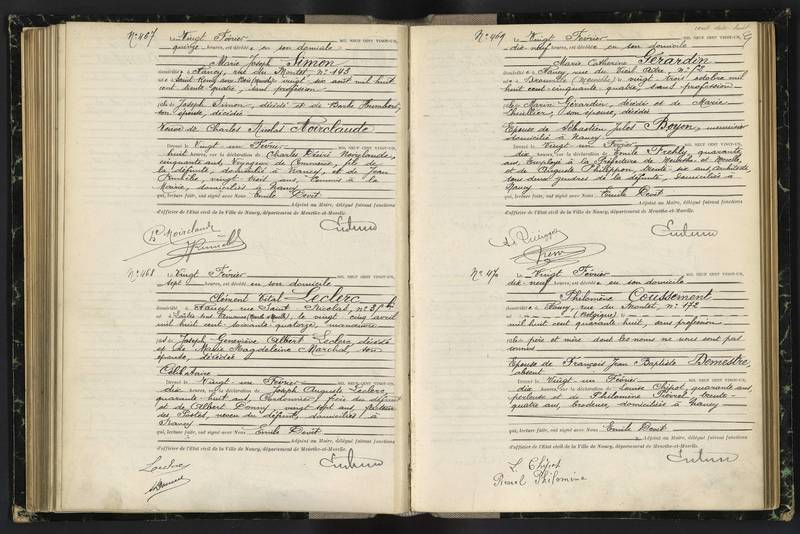 N° 467 Le Vingt Février MIL NEUF CENT VINGT-UN,
quinze heures, est décédée en son domicile
Marie Joseph Simon
domiciliée à Nancy, rue du Montet, n° 143
née à Saint Remy aux Bois vingt six août mil huit
cent trente quatre, sans profession
fille de Joseph Simon, décédé et de Barbe Humbert,
son épouse, décédée
Veuve de Charles Nicolas Noirclaude
Dressé le Vingt un Février MIL NEUF CENT VINGT-UN,
huit heures, sur la déclaration de Charles Désiré Noirclaude,
cinquante ans, Voyageur de Commerce, fils de
la défunte, domicilié à Nancy, et de Jean
vingt trois ans, Commis à la
Mairie, domicilié à Nancy
qui, lecture faite, ont signé avec Nous Emile Devit
Adjoint au Maire, délégué faisant fonctions
d'officier de l'Etat civil de la Ville de Nancy, département de Meurthe-et-Moselle.
Noirclaude
N° 468 Le Vingt Février MIL NEUF CENT VINGT-UN,
sept heures, est décédé en son domicile
Clément Vital Leclerc
domicilié à Nancy, rue Saint Nicolas, n° 37
né à le vingt cinq avril
mil huit cent soixante quatorze, manœuvre
fils de Joseph Geneviève Albert Leclerc, décédé
et de Marie Magdeleine Marchal, son
épouse, décédée
Célibataire
Dressé le Vingt un Février MIL NEUF CENT VINGT-UN,
dix heures, sur la déclaration de Joseph Auguste Leclerc,
quarante huit ans, Cordonnier, frère du défunt
et de Albert vingt sept ans, facteur
des Postes, neveu du défunt, domiciliés à
Nancy
qui, lecture faite, ont signé avec Nous Emile Devit
Adjoint au Maire, délégué faisant fonctions
d'officier de l'Etat civil de la Ville de Nancy, département de Meurthe-et-Moselle.
Leclerc
N° 469 Le Vingt Février MIL NEUF CENT VINGT-UN,
dix neuf heures, est décédée en son domicile
Marie Catherine Gérardin
domiciliée à Nancy, rue du Vieil Aître, n°
née à le vingt trois octobre mil
huit cent cinquante quatre, sans profession
fille de Marin Gérardin, décédé et de Marie
son épouse, décédée
Epouse de Sébastien Jules Boyon, menuisier
domicilié à Nancy
Dressé le Vingt un Février MIL NEUF CENT VINGT-UN,
dix heures, sur la déclaration de Emile quarante
ans, Employé à la Préfecture de Meurthe et Moselle,
et de Auguste Philippon, trente six ans, architecte,
tous deux gendres de la défunte, domiciliés à
Nancy
qui, lecture faite, ont signé avec Nous Emile Devit
Adjoint au Maire, délégué faisant fonctions
d'officier de l'Etat civil de la Ville de Nancy, département de Meurthe-et-Moselle.
N° 470 Le Vingt Février MIL NEUF CENT VINGT-UN,
dix neuf heures, est décédée en son domicile
Philomène Coussement
domiciliée à Nancy, rue du Montet, n° 172
née à (Belgique) le
mil huit cent quarante huit, sans profession
de père et mère dont les noms ne nous sont pas
connus
Epouse de François Jean Baptiste Demestre,
absent
Dressé le Vingt un Février MIL NEUF CENT VINGT-UN,
dix heures, sur la déclaration de Louise Chipot, quarante ans
perleuse et de Philomène Pierrel trente-
quatre ans, brodeuse, domiciliées à Nancy
qui, lecture faite, ont signé avec Nous Emile Devit
Adjoint au Maire, délégué faisant fonctions
d'officier de l'Etat civil de la Ville de Nancy, département de Meurthe-et-Moselle.
L. Chipot
Pierrel Philomène